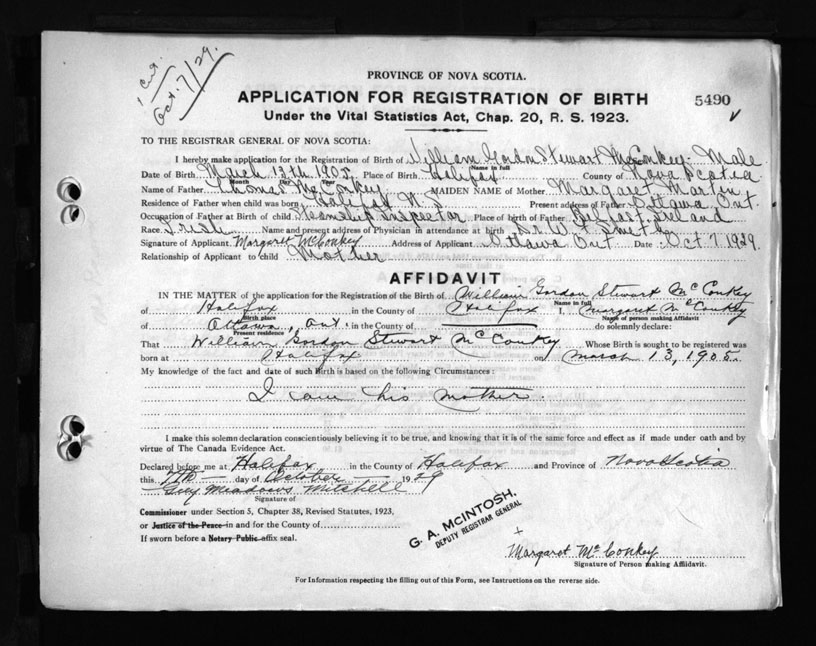 1 Cert.
Oct. 7/29.
PROVINCE OF NOVA SCOTIA.
APPLICATION FOR REGISTRATION OF BIRTH
5490
Under the Vital Statistics Act, Chap. 20, R. S. 1923.
TO THE REGISTRAR GENERAL OF NOVA SCOTIA:
I hereby make application for the Registration of Birth of William Gordon Stewart McConkey. Male
Name in full
Date of Birth March 13th 1905. Place of Birth Halifax County of Nova Scotia.
Month Day Year
Name of Father Thomas McConkey MAIDEN NAME of Mother Margaret Martin
Residence of Father when child was born Halifax N.S Present address of Father Ottawa Ont.
Occupation of Father at Birth of child Steamship Inspector Place of birth of Father Belfast Ireland
Race Irish Name and present address of Physician in attendance at birth Dr. W. F. Smith
Signature of Applicant Margaret McConkey Address of Applicant Ottawa Ont Date Oct 7 1929.
Relationship of Applicant to child Mother
AFFIDAVIT
IN THE MATTER of the application for the Registration of the Birth of William Gordon Stewart McConkey
Name in full
of Halifax in the County of Halifax I, Margaret McConkey
Birth place Name of person making Affidavit
of Ottawa, Ont. in the County of do solemnly declare:
Present residence
That William Gordon Stewart McConkey Whose Birth is sought to be registered was
born at Halifax on March 13, 1905.
My knowledge of the fact and date of such Birth is based on the following Circumstances:
I am his mother.
I make this solemn declaration conscientiously believing it to be true, and knowing that it is of the same force and effect as if made under oath and by
virtue of The Canada Evidence Act.
Declared before me at Halifax in the County of Halifax and Province of Nova Scotia
this 7th day of October 1929
Guy Meadows Mitchell
Signature of
Commissioner under Section 5, Chapter 38, Revised Statutes, 1923,
or Justice of the Peace in and for the County of
If sworn before a Notary Public affix seal.
G. A. McINTOSH,
DEPUTY REGISTRAR GENERAL
+
Margaret McConkey
Signature of Person making Affidavit.
For Information respecting the filling out of this Form, see Instructions on the reverse side.